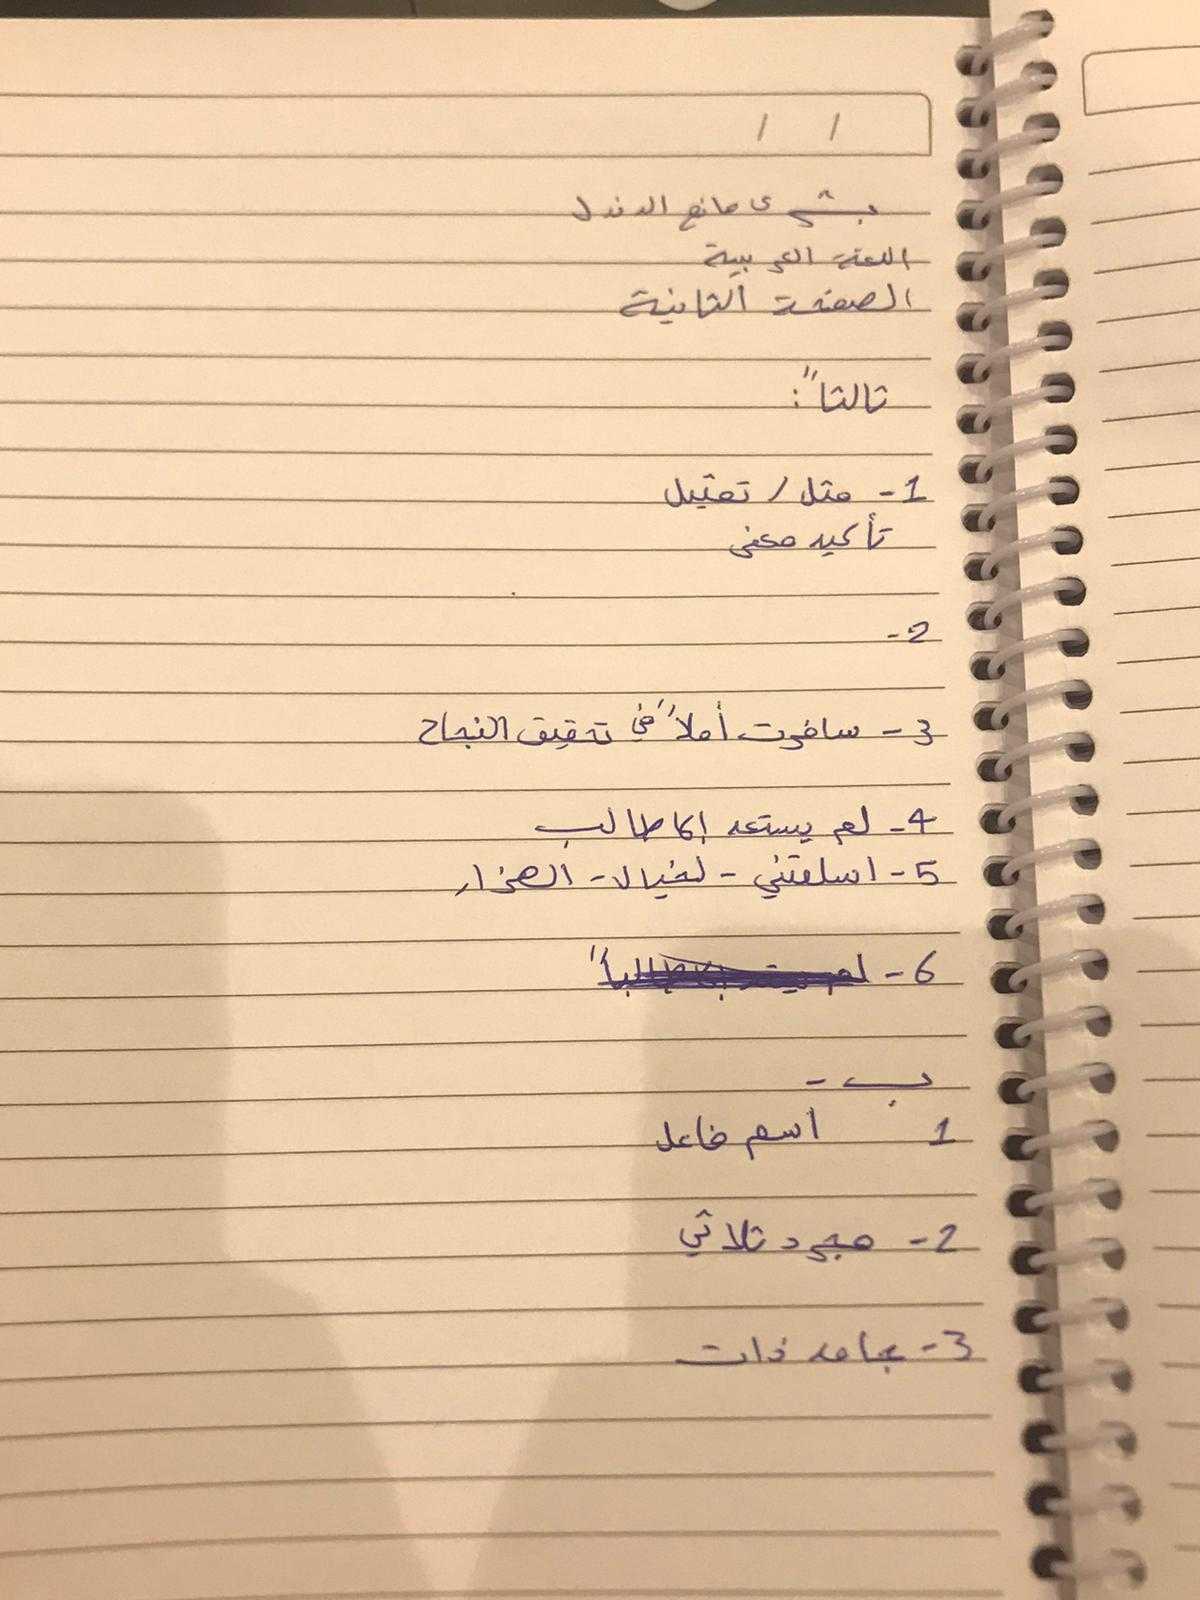 / /
بشرى مانع الدندل
اللغة العربية
الصفحة الثانية
ثالثاً:
1- مثل / تمثيل
تأكيد معنى
2-
3- سافرت أملاً في تحقيق النجاح
4- لم يستعد إلا طالب
5- اسلمتني - لخيال - الهزار
6-
ب -
1 اسم فاعل
2- مجرد ثلاثي
3- جامد ذات